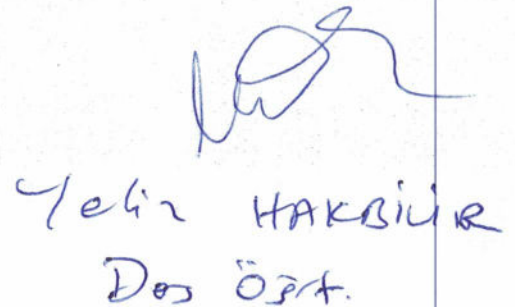 Yeliz HAKBİLİR
Ders Öğrt.